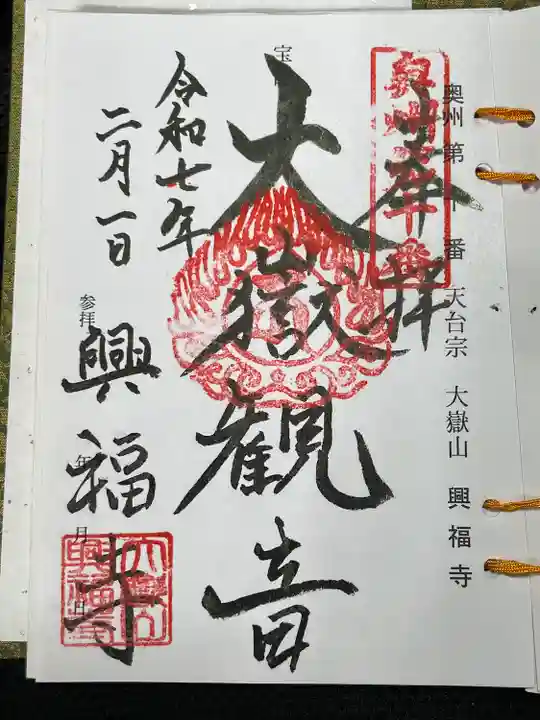 奥州第十番 天台宗 大嶽山 興福寺
奉拝
宝
大嶽観音
令和七年
二月一日
参拝 年 月 日
興福寺
大嶽山
興福寺